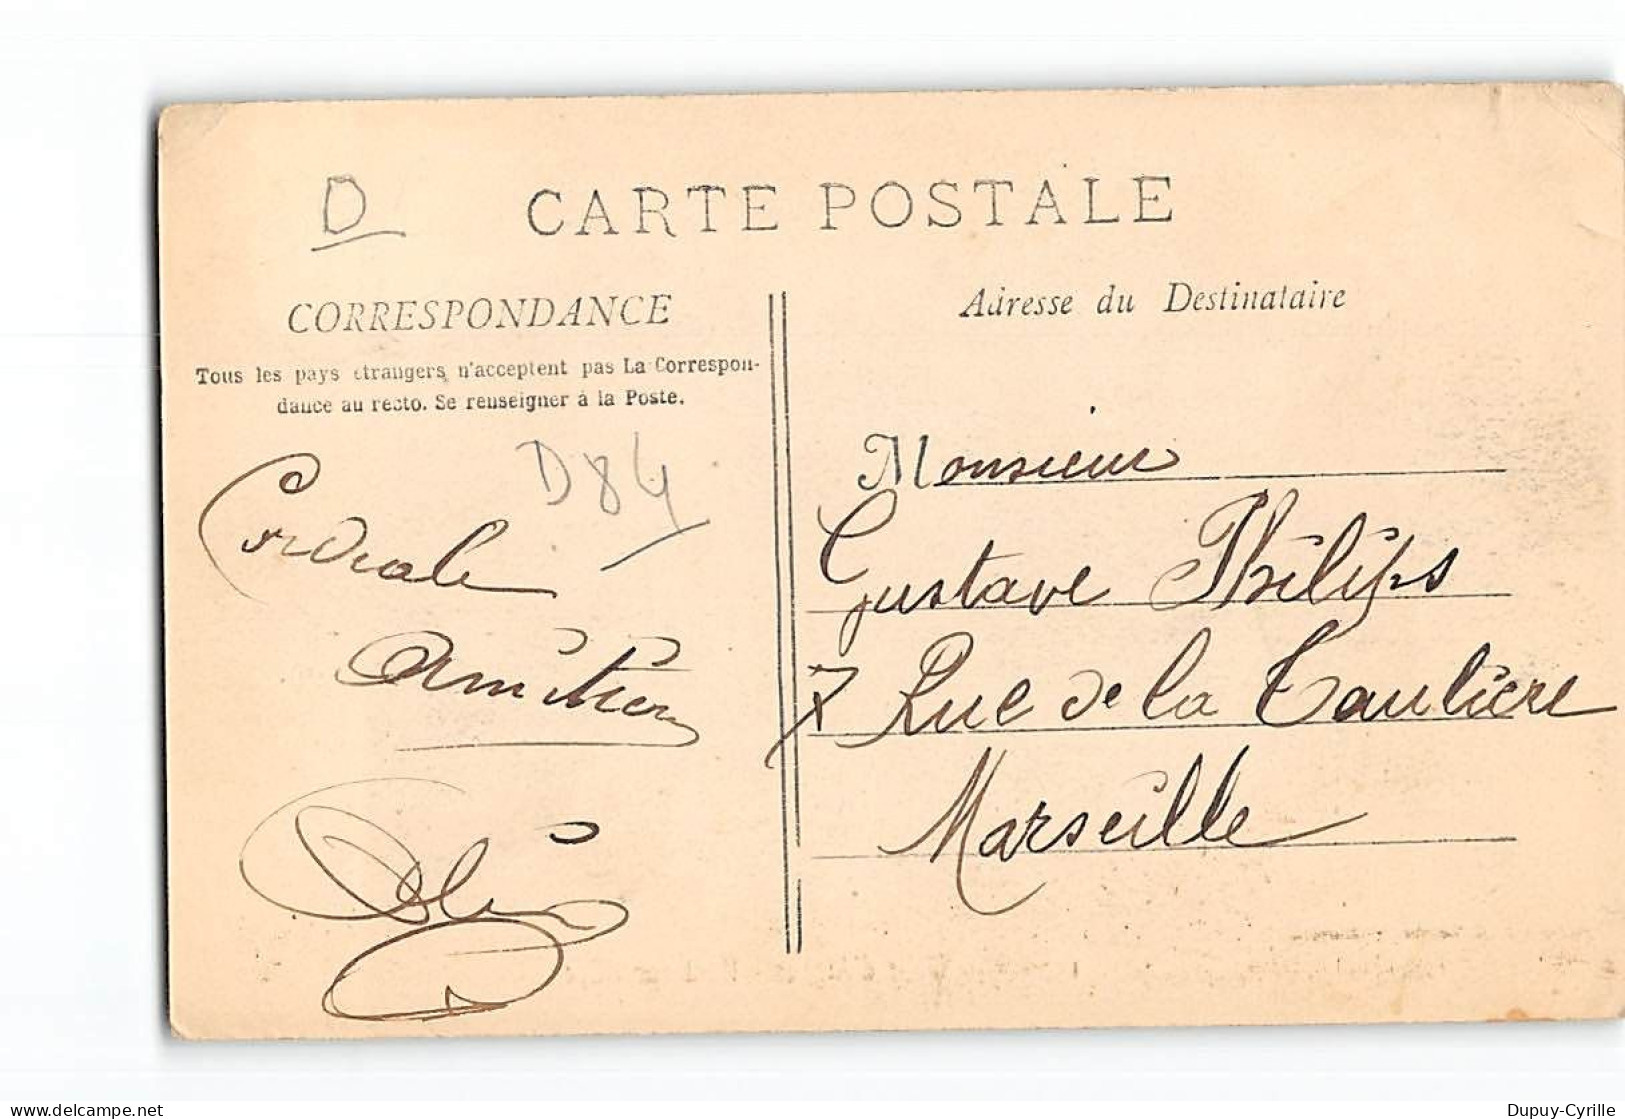 D
CARTE POSTALE
CORRESPONDANCE
Tous les pays étrangers n'acceptent pas La Correspon-
dance au recto. Se renseigner à la Poste.
D84
Cordiale
Amitier
Adresse du Destinataire
Monsieur
Gustave Philips
7 Rue de la Taulière
Marseille
delcampe.net
Dupuy-Cyrille